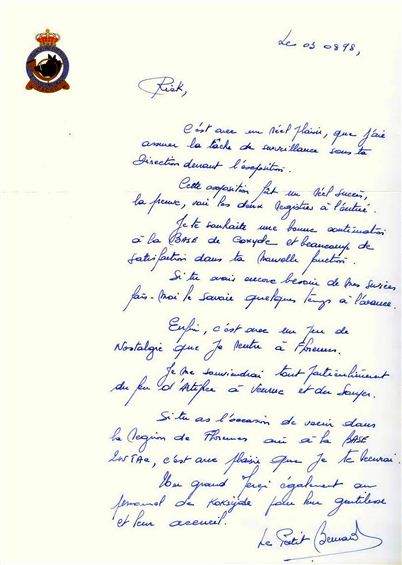 Le 03 0898,
Rick,
C'est avec un réel plaisir, que j'aie
assurer la tâche de surveillance sous ta
Direction durant l'exposition.
Cette exposition fut un réel succès,
la preuve, voir les deux Registres à l'entrée.
Je te souhaite une bonne continuation
à la BASE de Coxyde et beaucoup de
satisfaction dans ta nouvelle fonction.
Si tu avais encore besoin de mes services
fais-moi le savoir quelques temps à l'avance.
Enfin, c'est avec un peu de
Nostalgie que je rentre à Florennes.
Je me souviendrai tout particulièrement
du feu d'Artifice à et du Souper.
Si tu as l'occasion de venir dans
la Région de Florennes ou à la BASE
, c'est avec plaisir que Je te Recevrai.
Un grand Merci également au
personnel de Koksijde pour leur gentillesse
et leur accueil.
Le Petit Bernard